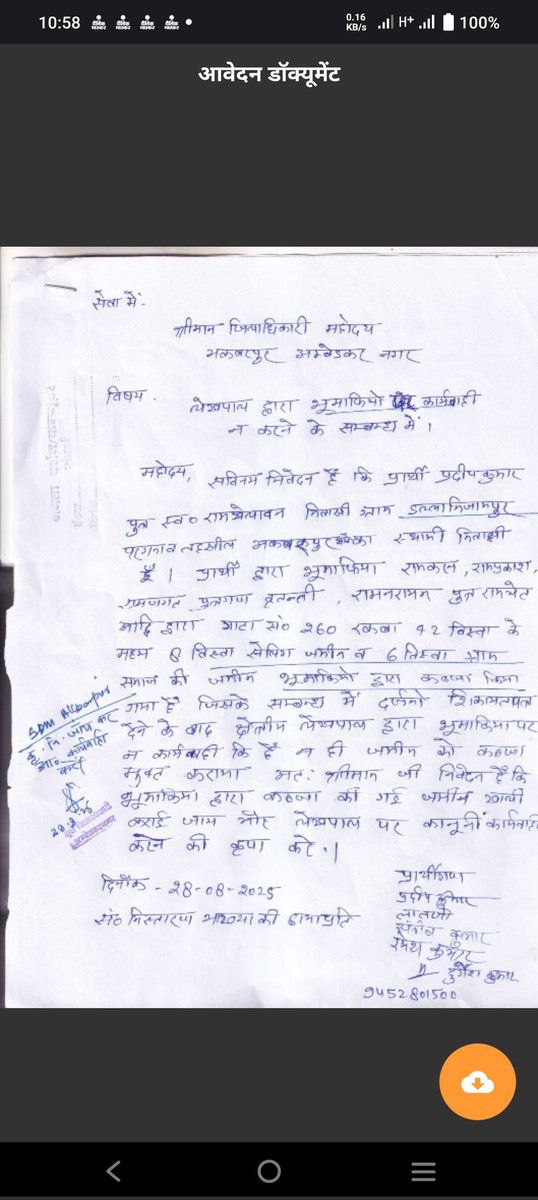 10:58
0.16 KB/s
H+
100%
आवेदन डॉक्यूमेंट
सेवा में-
श्रीमान जिलाधिकारी महोदय
अकबरपुर अम्बेडकर नगर
विषय- लेखपाल द्वारा भूमाफियो पर कार्यवाही
न करने के सम्बन्ध में।
महोदय, सविनय निवेदन है कि प्रार्थी प्रदीप कुमार
पुत्र स्व० निवासी ग्राम
तहसील अकबरपुर का स्थायी निवासी
है। प्रार्थी द्वारा भूमाफिया रामकरन, रामप्रकाश,
रामजगत पुत्रगण, रामनरायन पुत्र रामचेत
आदि द्वारा गाटा सं० 260 रकबा 42 विस्वा के
6 विस्वा ग्राम
समाज की जमीन भूमाफियो द्वारा कब्जा किया
गया है जिसके सम्बन्ध में दर्जनो शिकायतपत्र
देने के बाद क्षेत्रीय लेखपाल द्वारा भूमाफिया पर
न कार्यवाही कि है न ही जमीन को कब्जा
मुक्त कराया अतः श्रीमान जी निवेदन है कि
भूमाफिया द्वारा कब्जा की गई जमीन खाली
कराई जाय और लेखपाल पर कानूनी कार्यवाही
करने की कृपा करे।
SDM Akbarpur
जांच कर
कार्यवाही
करें
दिनाँक - 28-08-2025
सं० निस्तारण आख्या की छायाप्रति
प्रार्थीगण
प्रदीप कुमार
लालजी
कुमार
कुमार
दुर्गेश कुमार
9452801500